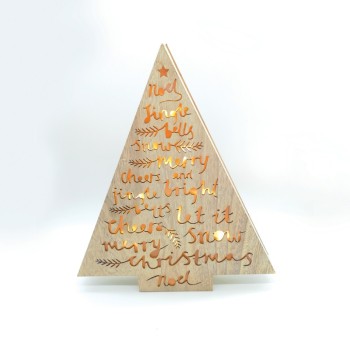 noel
jingle
bells
snow
merry
cheers and
jingle bright
bells let it
cheers snow
merry
christmas
noel